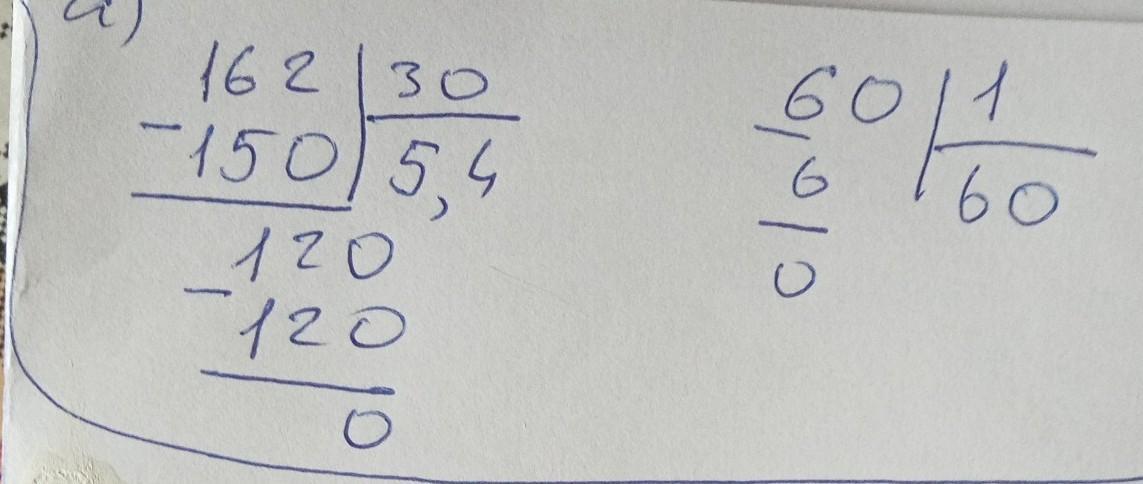 a)
162 | 30
-150 | 5,4
120
-120
0
60 | 1
-6 | 60
0